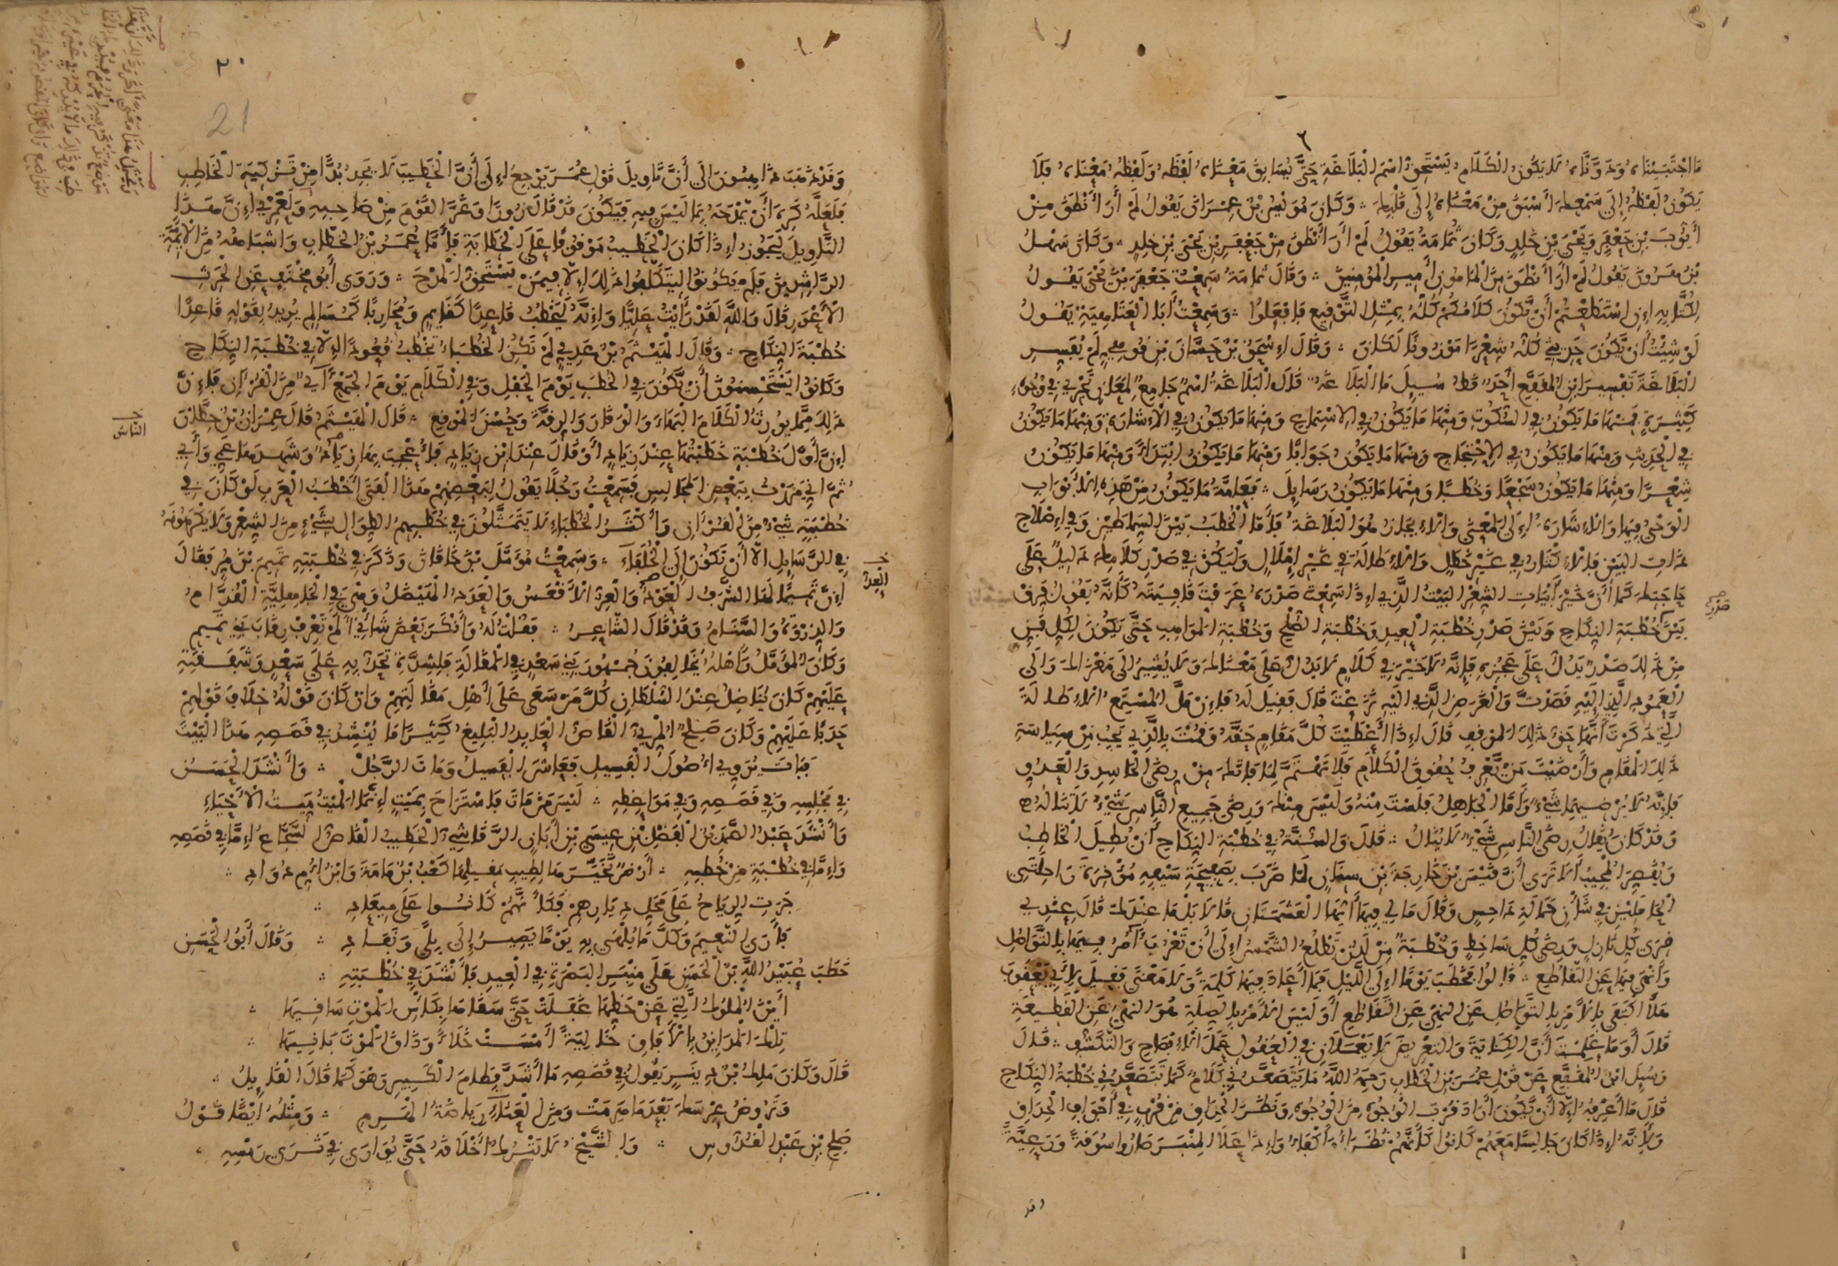 ما اجتبيناه ودوناه لا يكون الكلام يستحق اسم البلاغة حتى يسابق معناه لفظه ولفظه معناه فلا
يكون لفظه إلى سمعك أسبق من معناه إلى قلبك وكان مويس بن عمران يقول لم أر أنطق من
أيوب بن جعفر ويحيى بن خلد وكان ثمامة يقول لم أر أنطق من جعفر بن يحيى بن خلد وكان سهل
بن هرون يقول لم أر أنطق من المامون أمير المومنين وقال ثمامة سمعت جعفر بن يحيى يقول
لكتابه إن استطعتم أن يكون كلامكم كله مثل التوقيع فافعلوا وسمعت أبا العتاهية يقول
لو شئت أن يكون حديثي كله شعرا موزونا لكان وقال إسحق بن حسان بن قوهي لم يفسر
البلاغة تفسير ابن المقفع أحد قط سيل ما البلاغة قال البلاغة اسم جامع لمعان تجري في وجوه
كثيرة فمنها ما يكون في السكوت ومنها ما يكون في الاستماع ومنها ما يكون في الإشارة ومنها ما يكون
في الحديث ومنها ما يكون في الاحتجاج ومنها ما يكون جوابا ومنها ما يكون ابتداء ومنها ما يكون
شعرا ومنها ما يكون سجعا وخطبا ومنها ما يكون رسايل فعامة ما يكون من هذه الأبواب
الوحي فيها والإشارة إلى المعنى والإيجاز هو البلاغة فأما الخطب بين السماطين وفي إصلاح
ذات البين فالإكثار في غير خطل والإطالة في غير إملال وليكن في صدر كلامك دليل على
حاجتك كما أن خير أبيات الشعر البيت الذي إذا سمعت صدره عرفت قافيته كأنه يقول فرق
صدر
بين خطبة النكاح وبين صدر خطبة العيد وخطبة الصلح وخطبة المواهب حتى يكون لكل فن
من ذلك صدر يدل على عجزه فإنه لا خير في كلام لا يدل على معناك ولا يشير إلى مغزاك وإلى
العمود الذي إليه قصدت والغرض الذي إليه نزعت قال فقيل له فإن مل المستمع الإطالة
التي ذكرت أنها حق ذلك الموقف قال إذا أعطيت كل مقام حقه وقمت بالذي يجب من سياسة
ذلك المقام وأرضيت من يعرف حقوق الكلام فلا تهتم لما فاتك من رضى الحاسد والعدو
فإنه لا يرضيهما شيء وأما الجاهل فلست منه وليس منك ورضى جميع الناس شيء لا تناله
وقد كان يقال رضى الناس شيء لا ينال قال والسنة في خطبة النكاح أن يطيل الخاطب
ويقصر المجيب ألا ترى أن قيس بن خارجة بن سنان لما ضرب بصفيحة سيفه مؤخرة راحلتى
الحاملين في شأن حمالة داحس وقال ما لي فيها أيها العشمتان قالا بل ما عندك قال عندي
قرى كل نازل ورضى كل ساخط وخطبة من لدن تطلع الشمس إلى أن تغرب آمر فيها بالتواصل
وأنهى فيها عن التقاطع قالوا فخطب يوما إلى الليل فما أعاد فيها كلمة ولا معنى فقيل لأبي يعقوب
هلا اكتفى بالأمر بالتواصل عن النهي عن التقاطع أوليس الأمر بالصلة هو النهي عن القطيعة
قال أوما علمت أن الكناية والتعريض لا يعملان في العقول عمل الإفصاح والتكشف قال
وسيل ابن المقفع عن قول عمر بن الخطاب رحمه الله ما يتصعدني كلام كما تتصعدني خطبة النكاح
قال ما أعرفه إلا أن يكون أراد قرب الوجوه من الوجوه ونظر الحداق من قرب في أجواف الحداق
ولأنه إذا كان جالسا معهم كانوا كأنهم نظراء أكفاء وإذا علا المنبر صاروا سوقة ورعية
وقد
٢٠
21
وقد ذهب ذاهبون إلى أن تاويل قول عمر يرجع إلى أن الخطيب لا يجد بدا من تزكية الخاطب
فلعله كره أن يمدحه بما ليس فيه فيكون قد قال زورا وغر القوم من صاحبه ولعمري إن هذا
التاويل ليجوز إذا كان الخطيب موقوفا على الخطابة فأما عمر بن الخطاب وأشباهه من الأيمة
الراشدين فلم يكونوا ليتكلفوا ذلك إلا فيمن يستحق المدح وروى أبو مخنف عن الحرث
الأعور قال والله لقد رأيت عليا وإنه ليخطب قاعدا كقايم ومحاربا كمسالم يريد بقوله قاعدا
خطبة النكاح وقال الهيثم بن عدي لم تكن الخطباء تخطب قعودا إلا في خطبة النكاح
وكانوا يستحسنون أن يكون في الخطب يوم الحفل وفي الكلام يوم الجمع آي من القرآن فإن
ذلك مما يورث الكلام البهاء والوقار والرقة وحسن الموقع قال الهيثم قال عمران بن حطان
الناس
إن أول خطبة خطبتها عند زياد أو قال عند ابن زياد فأعجب بها زياد وشهدها عمي وأبي
ثم إني مررت ببعض المجالس فسمعت رجلا يقول لبعضهم هذا الفتى أخطب العرب لو كان في
خطبته شيء من القرآن وأكثر الخطباء لا يتمثلون في خطبهم الطوال بشيء من الشعر ولا يكرهونه
في الرسايل إلا أن تكون إلى الخلفاء وسمعت مؤمل بن خاقان وذكر في خطبته تميم بن مر فقال
إن تميما لها الشرف العود والعز الأقعس والعدد الهيضل وهي في الجاهلية القدام
العدد
والذروة والسنام وقد قال الشاعر فقلت له وأنكر بعض شأني ألم تعرف رقاب بني تميم
وكان المؤمل وأهله يخالفون جمهور بني سعد في المقالة فلشدة تحدبه على سعد وشفقته
عليهم كان يناضل عند السلطان كل من سعى على أهل مقالتهم وإن كان قوله خلاف قولهم
حدبا عليهم وكان صلح المري القاص العابد البليغ كثيرا ما ينشد في قصصه هذا البيت
فبات يروي أصول الفسيل فعاش الفسيل ومات الرجل وأنشد الحسن
في مجلسه وفي قصصه وفي مواعظه ليس من مات فاستراح بميت إنما الميت ميت الأحياء
وأنشد عبد الصمد بن الفضل بن عيسى بن أبان الرقاشي الخطيب القاص السجاع إما في قصصه
وإما في خطبة من خطبه أرض تخيرها لطيب مقيلها كعب بن مامة وابن أم دواد
جرت الرياح على محل ديارهم فكأنهم كانوا على ميعاد
فأرى النعيم وكل ما يلهى به يوما يصير إلى بلى ونفاد وقال أبو الحسن
خطب عبيد الله بن الحسن على منبر البصرة في العيد فأنشد في خطبته
أين الملوك التي عن حظها غفلت حتى سقاها بكأس الموت ساقيها
تلك المداين بالآفاق خالية أمست خلاء وذاق الموت بانيها
قال وكان ملك بن دينر يقول في قصصه ما أشد فطام الكبير وهو كما قال القايل
وتروض عرسك بعدما هرمت ومن العناء رياضة الهرم ومثله أيضا قول
صلح بن عبد القدوس والشيخ لا يترك أخلاقه حتى يوارى في ثرى رمسه